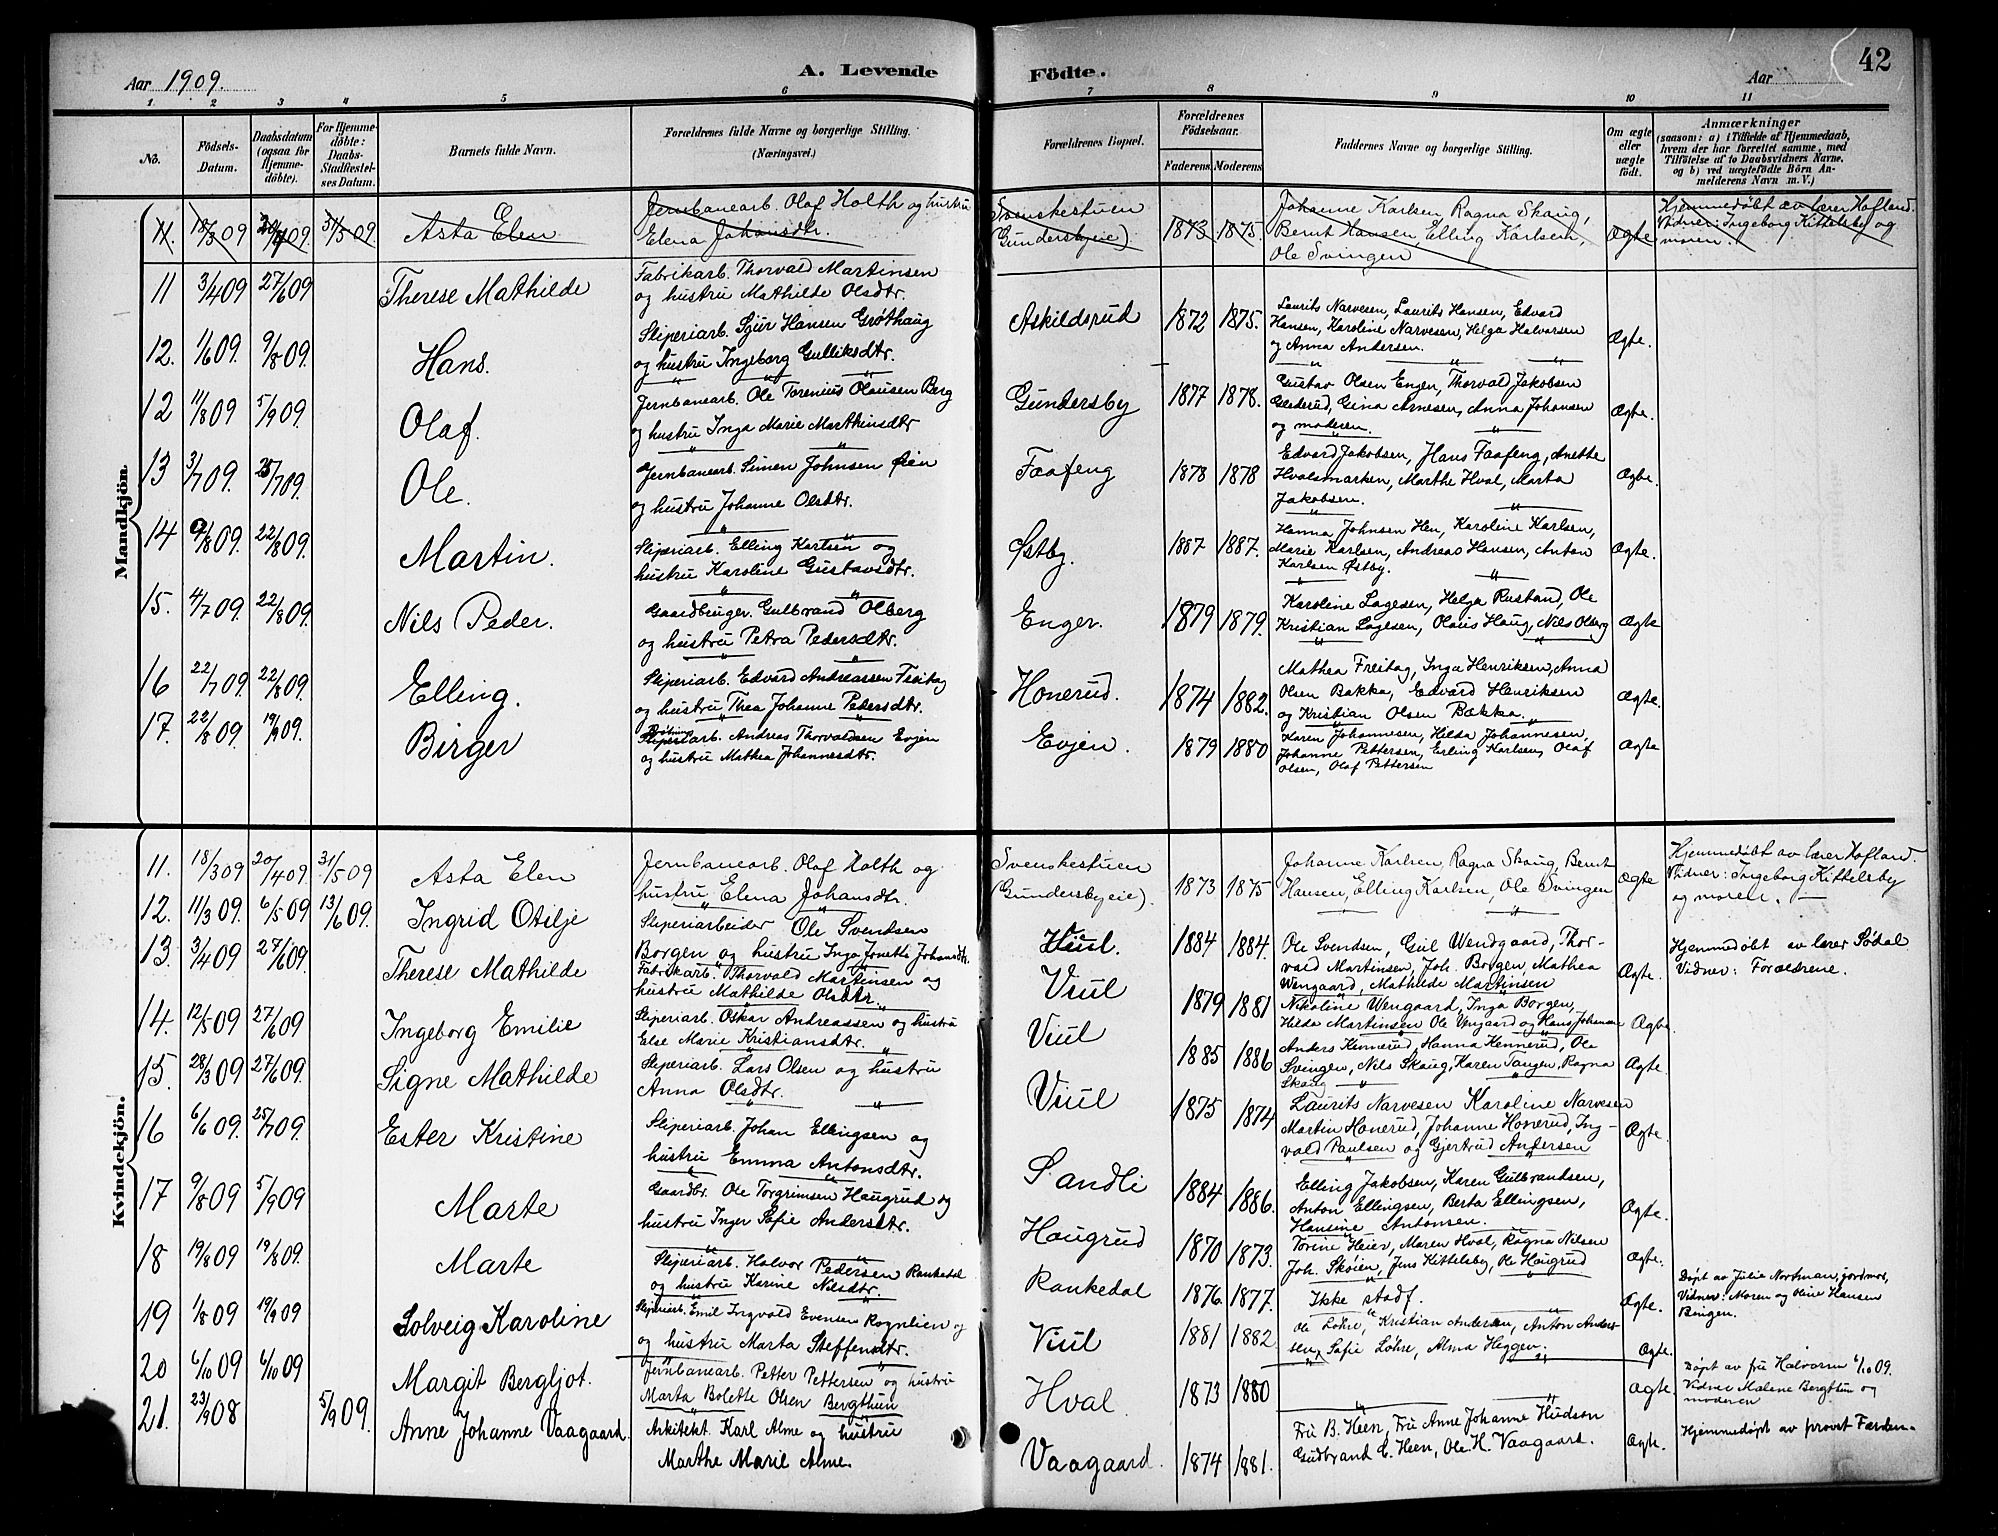 Aar 1909.
A. Levende Födte.
Aar
42
1 2 3 4 5 6 7 8 9 10 11
No.
Födsels-Datum.
Daabsdatum (ogsaa for Hjemme-döbte).
For Hjemme-döbte: Daabs-Stadfæstel-ses Datum.
Barnets fulde Navn.
Forældrenes fulde Navne og borgerlige Stilling. (Næringsvei.)
Forældrenes Bopæl.
Forældrenes Födselsaar.
Faderens. Moderens.
Faddernes Navne og borgerlige Stilling.
Om ægte eller uægte födt.
Anmærkninger
(saasom: a) i Tilfælde af Hjemmedaab, hvem der har forrettet samme, med Tilföielse af to Daabsvidners Navne, og b) ved uægtefödte Börn An-melderens Navn m. V.)
Mandkjön.
11. 18/3 09 20/4 09. 31/5 09. Asta Elen Jernbanearb. Olaf Holth og hustru Elena Johansdtr. Svenskestuen (Gundersbyeie) 1873 1875. Johanne Karlsen, Ragna Skaug, Bernt Hansen, Elling Karlsen, Ole Svingen Ægte Hjemmedøbt av lærer Hofland. Vidner: Ingeborg Kittelsby og moren.
11 3/4 09 27/6 09 Therese Mathilde Fabrikarb. Thorvald Martinsen og hustru Mathilde Olsdtr.
12. 1/6 09. 9/8 09. Hans. Sliperiarb. Sjur Hansen Grøthaug og hustru Ingeborg Gulliksdtr. Askildsrud 1872 1875. Laurits Narvesen, Laurits Hansen, Edvard Hansen, Karoline Narvesen, Helga Halvorsen og Anna Andersen. Ægte.
12 11/8 09 5/9 09. Olaf. Jernbanearb. Ole Torenius Olausen Berg og hustru Inga Marie Marthinsdtr Gundersby 1877 1878. Gustav Olsen Enger, Thorvald Jakobsen Gina Arnesen, Anna Johansen og moderen. Ægte.
13 3/7 09. 25/7 09. Ole. Jernbanearb. Simen Johnsen Øien og hustru Johanne Olsdtr. Faafeng 1878 1878 Edvard Jakobsen, Hans Faafeng, Anette Hvalsmarken, Marthe Hval, Marta Jakobsen. Ægte.
14 9/8 09. 22/8 09. Martin. Sliperiarb. Elling Karlsen og hustru Karoline Gustavsdtr. Østby. 1887 1887. Hanna Johnsen Hen, Karoline Karlsen, Marie Karlsen, Andreas Hansen, Anton Karlsen Østby. Ægte.
15. 4/7 09. 22/8 09. Nils Peder. Gaardbruger. Gulbrand Olberg og hustru Petra Pedersdtr. Enger. 1879 1879. Karoline Lagesen, Helga Rustand, Ole Kristian Lagesen, Olaus Haug, Nils Olberg Ægte
16 22/7 09. 22/8 09. Elling. Sliperiarb. Edvard Andreassen Freitag og hustru Thea Johanne Pedersdtr. Honerud. 1874 1882. Mathea Freitag, Inga Henriksen, Anna Olsen Bakka, Edvard Henriksen og Kristian Olsen Bækka. Ægte.
17. 22/8 09. 19/9 09. Birger Sliperiarb. Andreas Thorvaldsen Evjen og hustru Mathea Johannesdtr. Evjen. 1879 1880 Karen Johannesen, Hilda Johannesen, Johanne Pettersen, Erling Karlsen, Olaf Olsen, Olaf Pettersen Ægte
Kvindekjön.
11. 18/3 09 20/4 09 31/5 09 Asta Elen Jernbanearb. Olaf Holth og hustru Elena Johansdtr. Svenskestuen (Gundersbyeie). 1873 1875 Johanne Karlsen, Ragna Skaug, Bernt Hansen, Elling Karlsen, Ole Svingen Ægte Hjemmedøbt av lærer Hofland. Vidner: Ingeborg Kittelsby og moren.
12. 11/3 09. 6/5 09 13/6 09. Ingrid Otilje Sliperiarbeider Ole Svendsen Borgen og hustru Inga Jonette Johansdtr. Viul. 1884 1884. Ole Svendsen, Gul Wendgaard, Thor-vald Martinsen, Joh. Borgen, Mathea Wengaard, Mathilde Martinsen Ægte. Hjemmedøbt av lærer Sødal Vidner: Forældrene.
13. 3/4 09 27/6 09. Therese Mathilde Fabrikarb. Thorvald Martinsen og hustru Mathilde Olsdtr. Viul 1879 1881 Nikoline Wengaard, Inga Borgen, Hilda Martinsen Ole Vengaard og Hans Johansen Ægte.
14. 12/5 09 27/6 09 Ingeborg Emilie Sliperiarb. Oskar Andreassen og hustru Else Marie Kristiansdtr. Viul 1885 1886 Anders Kennerud, Hanna Kennerud, Ole Svingen, Nils Skaug, Karen Tangen, Ragna Skaug Ægte.
15. 28/3 09 27/6 09. Signe Mathilde Sliperiarb. Lars Olsen og hustru Anna Olsdtr. Viul 1875 1874 Laurits Narvesen Karoline Narvesen Martin Honerud, Johanne Honerud, Ing-vald Paulsen og Gjertrud Andersen Ægte.
16 6/6 09. 25/7 09. Ester Kristine Sliperiarb. Johan Ellingsen og hustru Emma Antonsdtr. Sandli 1884 1886. Elling Jakobsen, Karen Gulbrandsen, Anton Ellingsen, Berta Ellingsen, Hansine Antonsen. Ægte.
17 9/8 09 5/9 09 Marte Gaardbr. Ole Torgrimsen Haugrud og hustru Inger Sofie Andersdtr. Haugrud 1870 1873. Torine Heier, Maren Hval, Ragna Nilsen Joh. Skøien, Jens Kittelsby, Ole Haugrud Ægte.
18 19/8 09 19/8 09. Marte Sliperiarb. Halvor Pedersen Rankedal og hustru Karine Nilsdtr. Rankedal 1876 1877. Ikke stadf. Ægte. Døpt av Julie Nortman, jordmor, Vidner: Moren og Oline Hansen Bingen.
19 1/8 09 19/9 09 Solveig Karoline Sliperiarb. Emil Ingvald Evensen Rognlien og og hustru Marta Steffensdtr. Viul 1881 1882 Ole Løhre, Kristian Andersen, Anton Ander-sen, Sofie Løhre, Alma Heggen. Ægte.
20 6/10 09 6/10 09 Margit Bergljot. Jernbanearb. Petter Pettersen og hustru Marta Bolette Olsen Bergthun Hval 1873 1880 Ægte. Døpt av fru Halvorsen 6/10 09. Vidner Malene Bergthun og moderen
21. 23/9 08 5/9 09. Anne Johanne Vaagaard Arkitekt. Karl Alme og hustru Marthe Marie Alme. Vaagaard. 1874 1881. Fru B. Heen, Fru Anne Johanne Hudson Gudbrand E. Heen, Ole H. Vaagaard. Ægte. Hjemmedøpt av provst Færden.